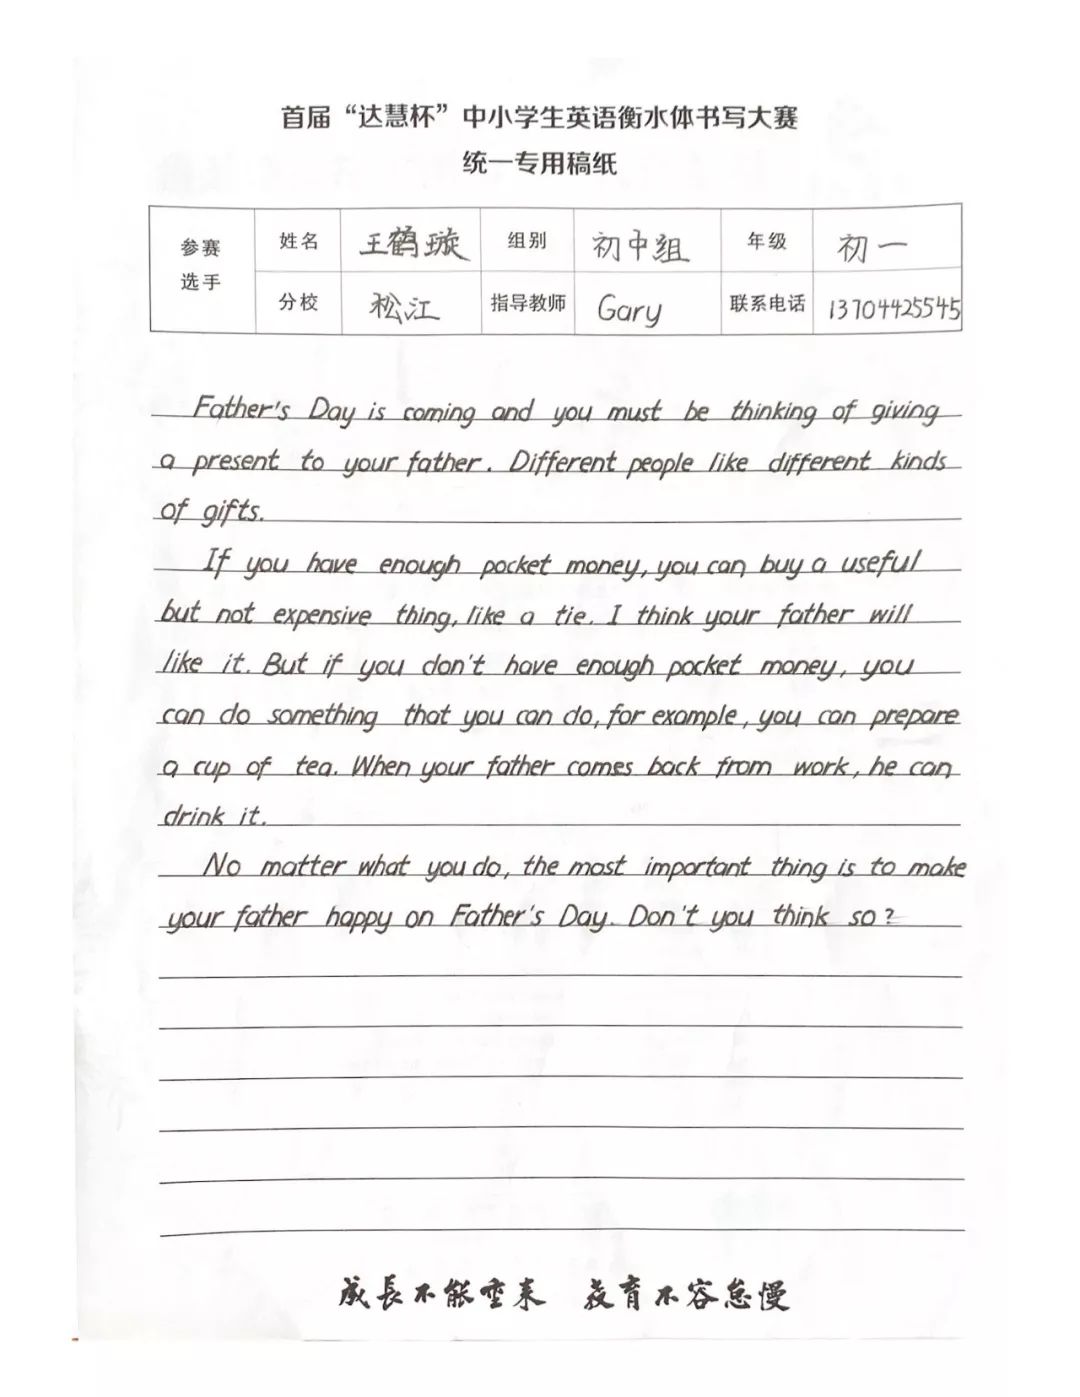 首届“达慧杯”中小学生英语衡水体书写大赛
统一专用稿纸
参赛选手 姓名 王鹤璇 组别 初中组 年级 初一
分校 松江 指导教师 Gary 联系电话 13704425545
Father's Day is coming and you must be thinking of giving
a present to your father. Different people like different kinds
of gifts.
If you have enough pocket money, you can buy a useful
but not expensive thing, like a tie. I think your father will
like it. But if you don't have enough pocket money, you
can do something that you can do, for example, you can prepare
a cup of tea. When your father comes back from work, he can
drink it.
No matter what you do, the most important thing is to make
your father happy on Father's Day. Don't you think so?
成長不能重来 教育不容怠慢